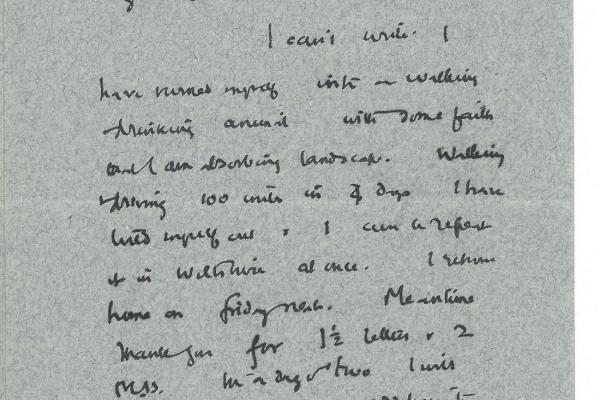 I can't write. I
have turned myself into a walking
drinking animal with some faith
that I am absorbing landscape. Walking
driving 100 miles in days I have
tired myself out & I can't repeat
it in Wiltshire at once. I return
home on Friday next. Meantime
Thank you for 1½ letters & 2
MSS. In a day or two I will